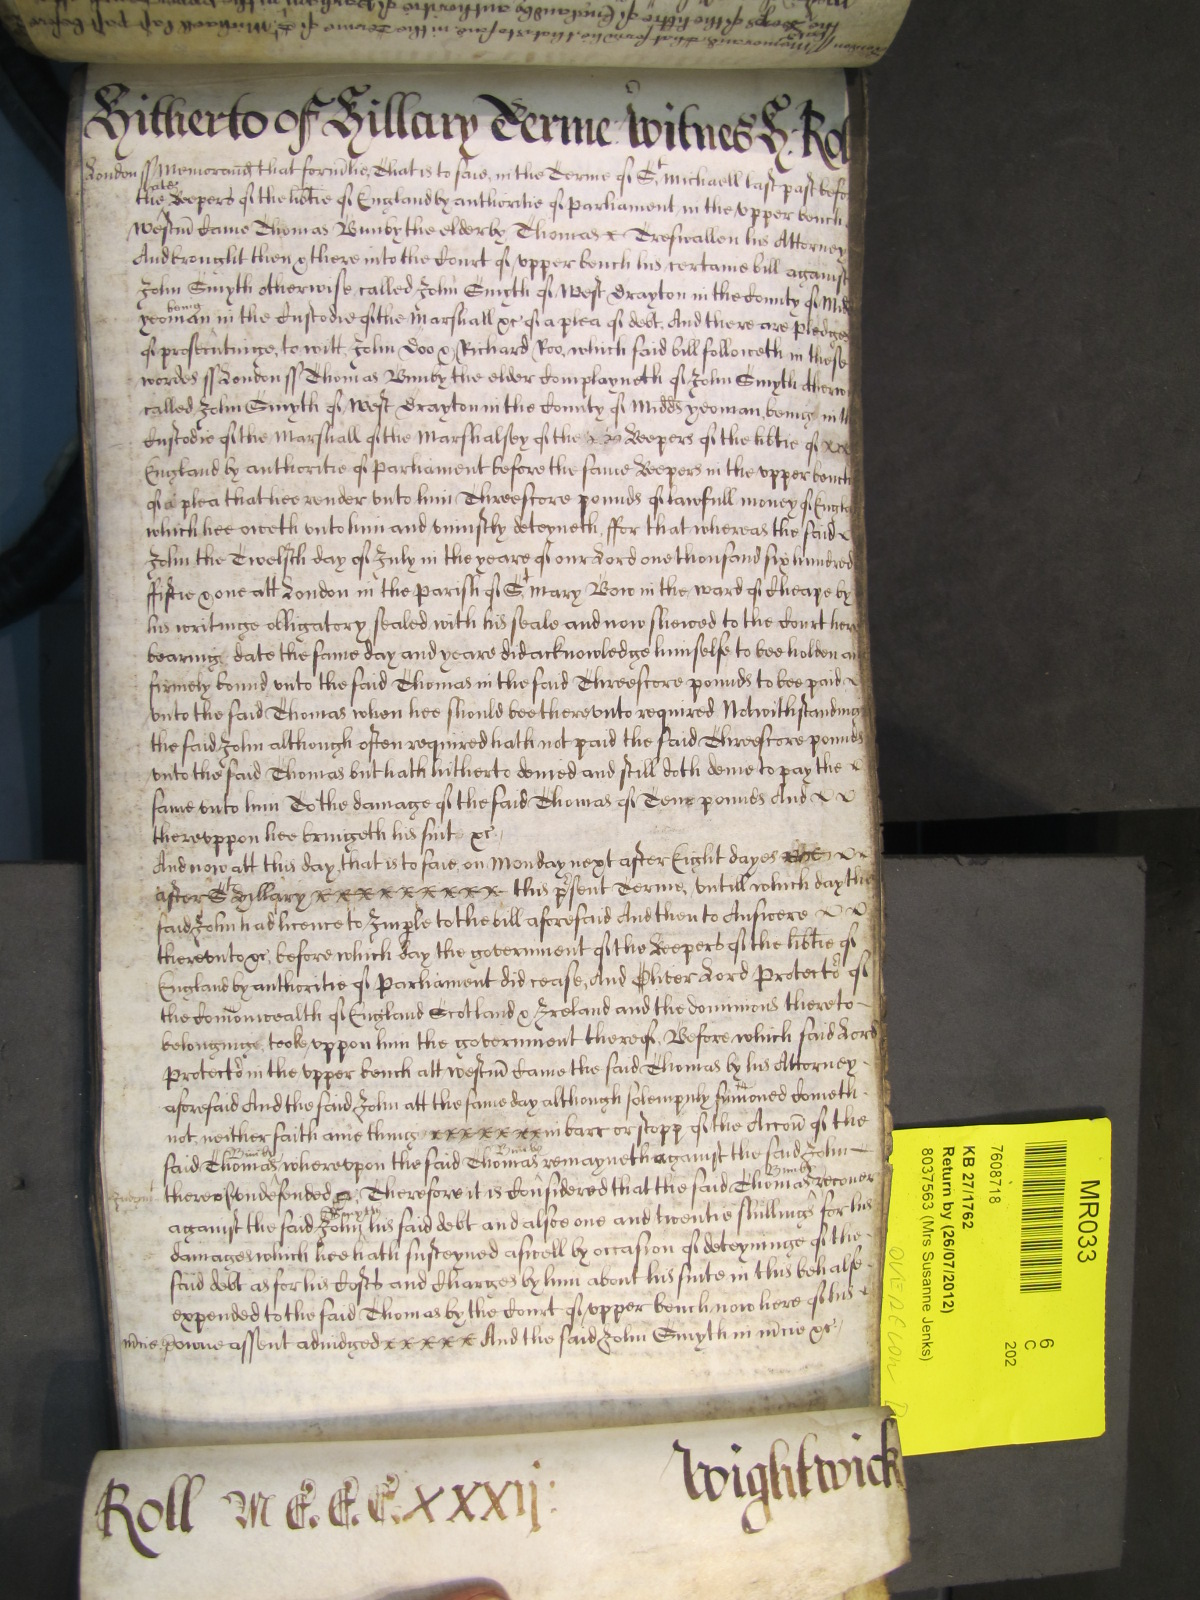 Hitherto of Hillary Terme Witnes H: Rol
London ss Memorand that form̃lie, That is to saie, in the Terme of St Michaell last past befo
the late Keepers of the lib̃tie of England by authoritie of Parliament, in the vpper bench
Westm̃ Came Thomas Bunby the elder by Thomas x Treswallen his Attorney
And brought then & there into the Court of vpper bench his certaine bill against
John Smyth otherwise called John Smyth of West Drayton in the County of Midd
yeoman being in the Custodie of the Marshall &c of a plea of debt, And there are pledges
of prosecutinge, to witt, John Doo & Richard Roo, which said bill followeth in these
wordes ss London ss Thomas Bunby the elder Complayneth of John Smyth otherw
called John Smyth of West Drayton in the County of Midds yeoman, being in th
Custodie of the Marshall of the Marshalsey of the x x Keepers of the lib̃tie of xx
England by authoritie of Parliament before the same Keepers in the vpper bench
of a plea that hee render vnto him Threescore pounds of lawfull money of Engla
which hee oweth vnto him and vniustly deteyneth, ffor that whereas the said
John the Twelfth day of July in the yeare of our Lord one thousand six hundred
ffiftie & one att London in the parish of St Mary Bow in the ward of Cheape by
his writinge obligatory sealed with his seale and now shewed to the Court here
bearing date the same day and yeare did acknowledge himselfe to bee holden an
firmely bound vnto the said Thomas in the said Threescore pounds to bee paid
vnto the said Thomas when hee should bee therevnto required Notwithstanding
the said John although often required hath not paid the said Threescore pounds
vnto the said Thomas but hath hitherto denied and still doth denie to pay the
same vnto him To the damage of the said Thomas of Tenn pounds And
therevppon hee bringeth his suit &c
And now att this day, that is to saie, on Monday next after Eight dayes
after St Hillary xxxxxxxxx this p̱sent Terme, vntill which day the
said John had licence to Imp̱le to the bill aforesaid And then to Answere
therevnto &c, before which day the government of the Keepers of the lib̃tie of
England by authoritie of Parliament did cease, And Oliver Lord Protector of
the Com̃onwealth of England Scotland & Ireland and the dominions thereto
belonginge, tooke vppon him the government thereof, Before which said Lord
Protector in the vpper bench att Westm̃ Came the said Thomas by his Attorney
aforesaid And the said John att the same day although solempnly sum̃oned Cometh
not, neither saith anie thing xxxxxxx in barr or stopp of the Accon̄ of the
said Thomas Bunby, wherevpon the said Thomas Bunby remayneth against the said John
Judgmt thereof vndefended &c, Therefore it is Considered that the said Thomas Bunby recouer
against the said John Smyth his said debt and alsoe one and twentie shillings for his
damages which hee hath susteyned aswell by occasion of deteyninge of the
said debt as for his Costs and Charges by him about his suite in this behalfe
expended to the said Thomas by the Court of vpper bench now here of his
m̃cie owne assent adiudged xxxxx And the said John Smyth in m̃cie &c
Roll MCCCCxxxij: Wightwick
MR033
7608718
KB 27/1762
Return by (26/07/2012)
8037563 (Mrs Susanne Jenks)
6
C
202